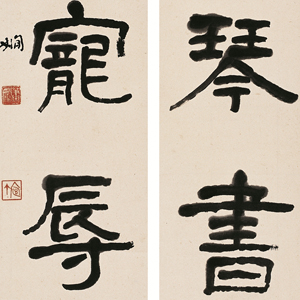 琴書
寵辱